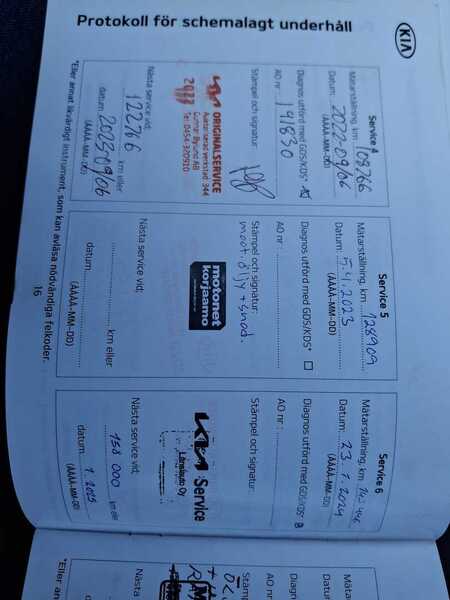 Protokoll för schemalagt underhåll
KIA
Service 4
Mätarställning, km: 108766
Datum: 2022-09/06
(ÅÅÅÅ-MM-DD)
Diagnos utförd med GDS/KDS*
AO nr: 191830
Stämpel och signatur:
KIA ORIGINALSERVICE
Auktoriserad verkstad 344
Gunnar Bylund AB
Tel. 0454-320910
Nästa service vid:
122766 km eller
datum: 2023-09/06
(ÅÅÅÅ-MM-DD)
Service 5
Mätarställning, km: 128909
Datum: 5.4.2023
(ÅÅÅÅ-MM-DD)
Diagnos utförd med GDS/KDS*
AO nr:
Stämpel och signatur:
moot.öljy + snod.
motonet
korjaamo
Nästa service vid:
km eller
datum:
(ÅÅÅÅ-MM-DD)
Service 6
Mätarställning, km:
Datum: 23.7.2024
(ÅÅÅÅ-MM-DD)
Diagnos utförd med GDS/KDS*
AO nr:
Stämpel och signatur:
KIA Service
Länsiauto Oy
Nästa service vid:
158 000 km eller
datum: 7.2025
(ÅÅÅÅ-MM-DD)
*Eller annat likvärdigt instrument, som kan avläsa nödvändiga felkoder.
16
Mätarställning
Datum:
Diagnos utförd
AO nr:
Nästa
datum
*Eller an